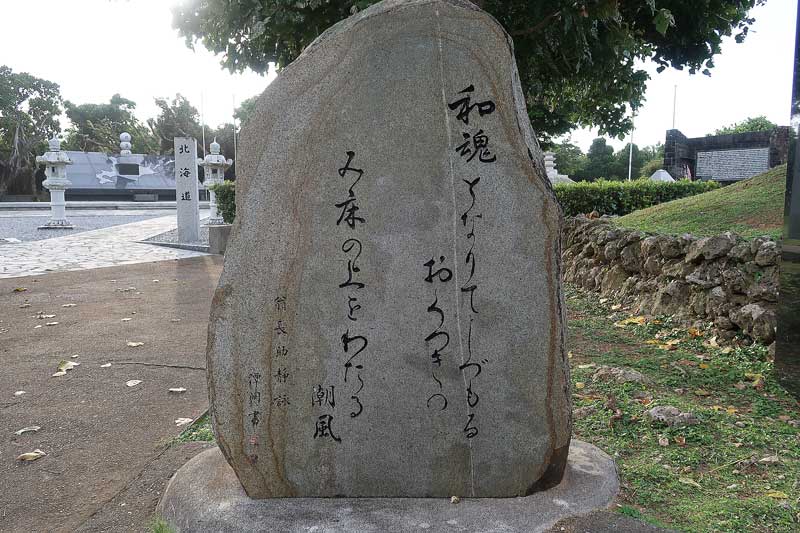 和魂となりてしづもる
おくつきの
み床の上をわたる
潮風
翁長助静詠
北海道